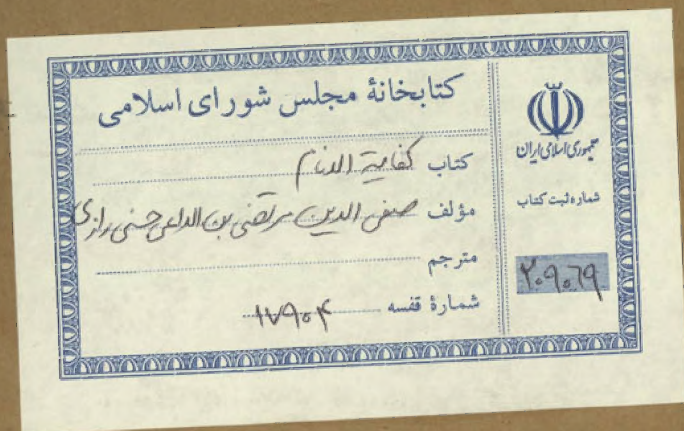 کتابخانهٔ مجلس شورای اسلامی
کتاب کفایة الانام
مؤلف صفی الدین مرتضی بن الداعی حسنی رازی
مترجم
شمارهٔ قفسه ۱۷۹۰۴
جمهوری اسلامی ایران
شماره ثبت کتاب
۲۰۹۰۶۹